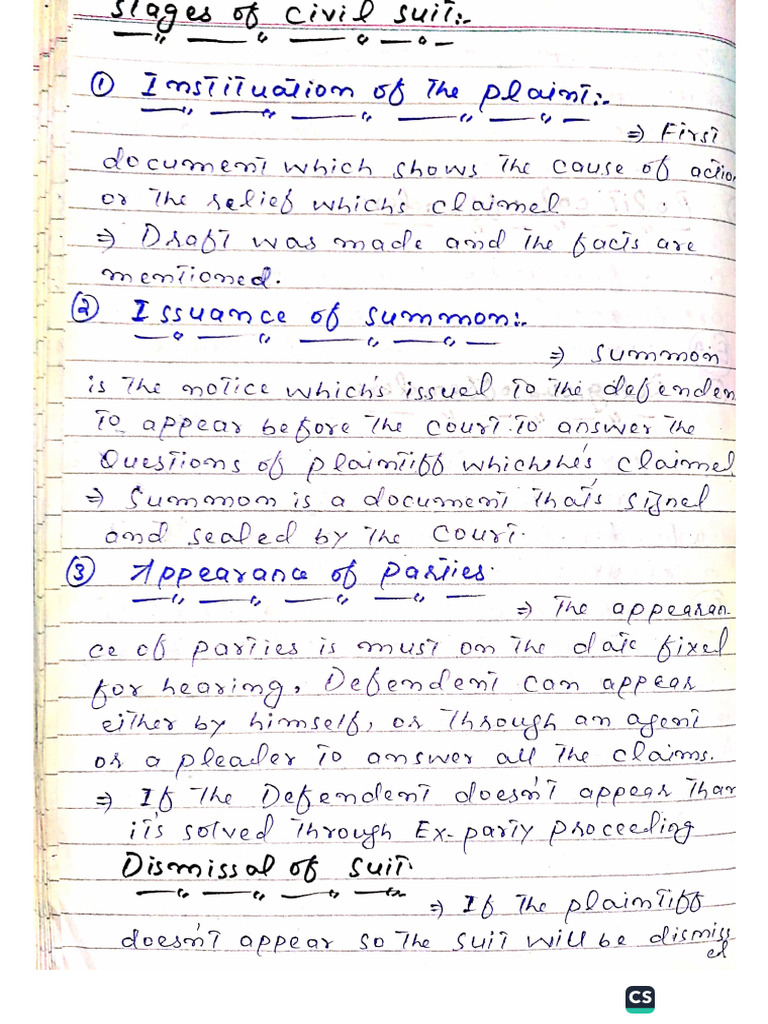 Stages of civil suit:-
① Instituation of the plaint:-
⇒ First
document which shows the cause of action
or the relief which's claimed
⇒ Draft was made and the facts are
mentioned.
② Issuance of summon:-
⇒ summon
is the notice which's issued to the defenden
to appear before the court to answer the
Questions of plaintiff which he's claimed
⇒ Summon is a document that's signed
and sealed by the court.
③ Appearance of parties.
⇒ The appearan
ce of parties is must on the date fixed
for hearing, Defendent can appear
either by himself, or through an agent
or a pleader to answer all the claims.
⇒ If the Defendent doesn't appear than
it's solved through Ex-party proceeding
Dismissal of suit.
⇒ If the plaintiff
doesn't appear so the suit will be dismiss
ed
CS